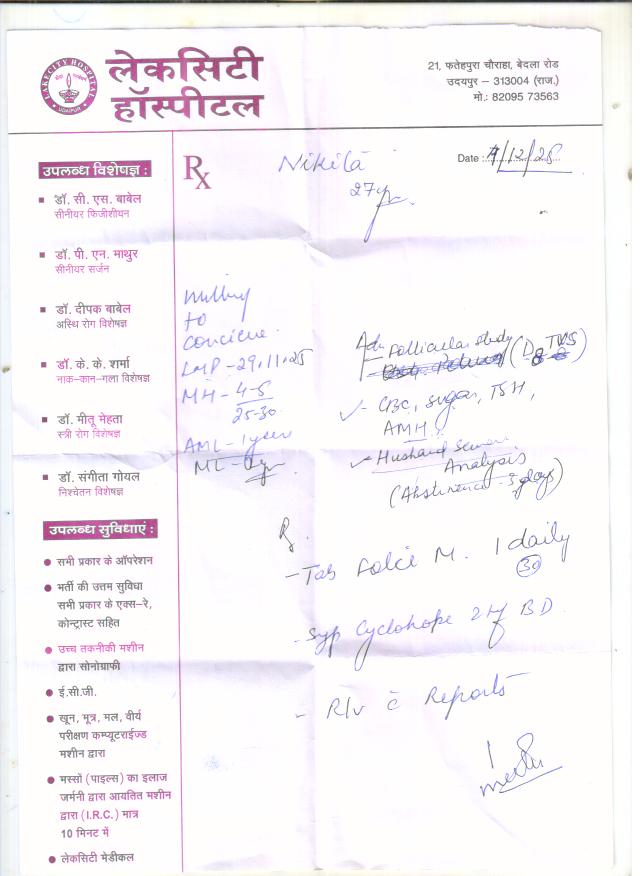 LAKECITY HOSPITAL
UDAIPUR
लेकसिटी
हॉस्पीटल
21, फतेहपुरा चौराहा, बेदला रोड
उदयपुर – 313004 (राज.)
मो.: 82095 73563
Date :
/12/25
Rx
Nikita
27yr
उपलब्ध विशेषज्ञ :
डॉ. सी. एस. बाबेल
सीनीयर फिजीशीयन
डॉ. पी. एन. माथुर
सीनीयर सर्जन
डॉ. दीपक बाबेल
अस्थि रोग विशेषज्ञ
डॉ. के. के. शर्मा
नाक-कान-गला विशेषज्ञ
डॉ. मीतू मेहता
स्त्री रोग विशेषज्ञ
डॉ. संगीता गोयल
निश्चेतन विशेषज्ञ
to
LMP - 29.11.25
MH - 4-5
25-30
AML - 1 year
ML -
Adv
- Follicular study
(D8 TVS)
- CBC, Sugar, TSH,
AMH
- Husband Semen
Analysis
(Abstinence - 3 days)
उपलब्ध सुविधाएं :
सभी प्रकार के ऑपरेशन
भर्ती की उत्तम सुविधा
सभी प्रकार के एक्स–रे,
कोन्ट्रास्ट सहित
उच्च तकनीकी मशीन
द्वारा सोनोग्राफी
ई.सी.जी.
खून, मूत्र, मल, वीर्य
परीक्षण कम्प्यूटराईज्ड
मशीन द्वारा
मस्सों (पाइल्स) का इलाज
जर्मनी द्वारा आयतित मशीन
द्वारा (I.R.C.) मात्र
10 मिनट में
लेकसिटी मेडीकल
Rx
- Tab Folci M. 1 daily
30
- Syp Cyclohope 2 tsf BD
- R/v c̄ Reports